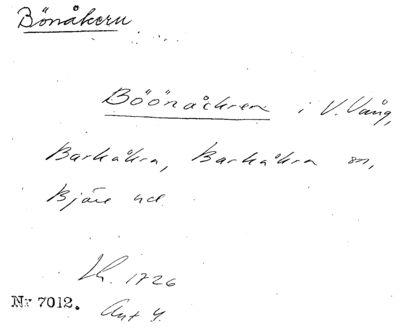 Bönåkern
Böönåckren i V. Vång,
Barkåkra, Barkåkra sn,
Bjäre hd
Lh. 1726
Nr 7012.
Ant 4.